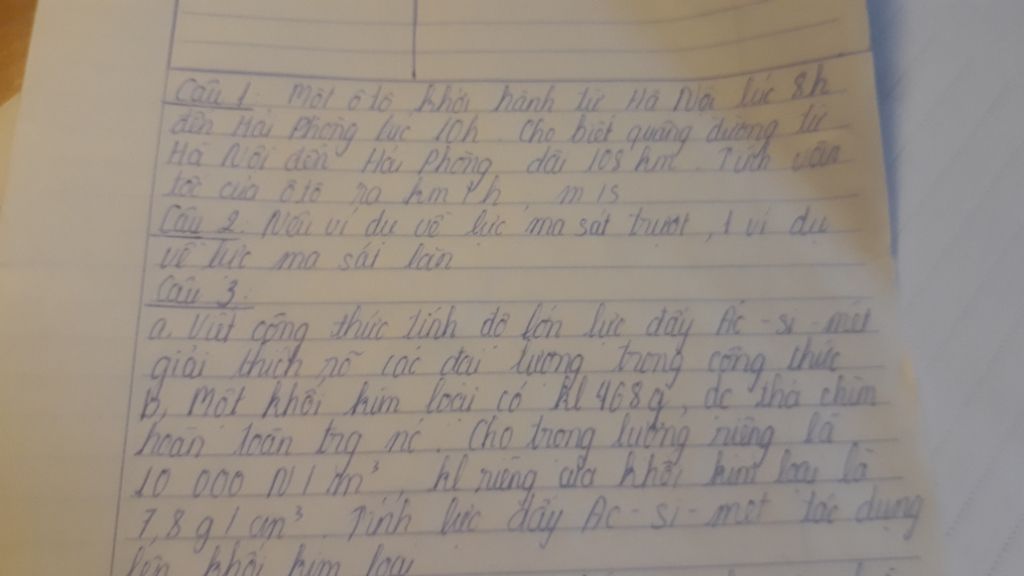 Câu 1. Một ô tô khởi hành từ Hà Nội lúc 8h
đến Hải Phòng lúc 10h. Cho biết quãng đường từ
Hà Nội đến Hải Phòng dài 108 km. Tính vận
tốc của ô tô ra km/h, m/s
Câu 2. Nêu ví dụ về lực ma sát trượt, 1 ví dụ
về lực ma sát lăn
Câu 3.
a. Viết công thức tính độ lớn lực đẩy Ác-si-mét
giải thích rõ các đại lượng trong công thức
b, Một khối kim loại có kl 468g, đc thả chìm
hoàn toàn trg nc. Cho trọng lượng riêng là
10 000 N/m³, kl riêng của khối kim loại là
7,8 g/cm³. Tính lực đẩy Ác-si-mét tác dụng
lên khối kim loại